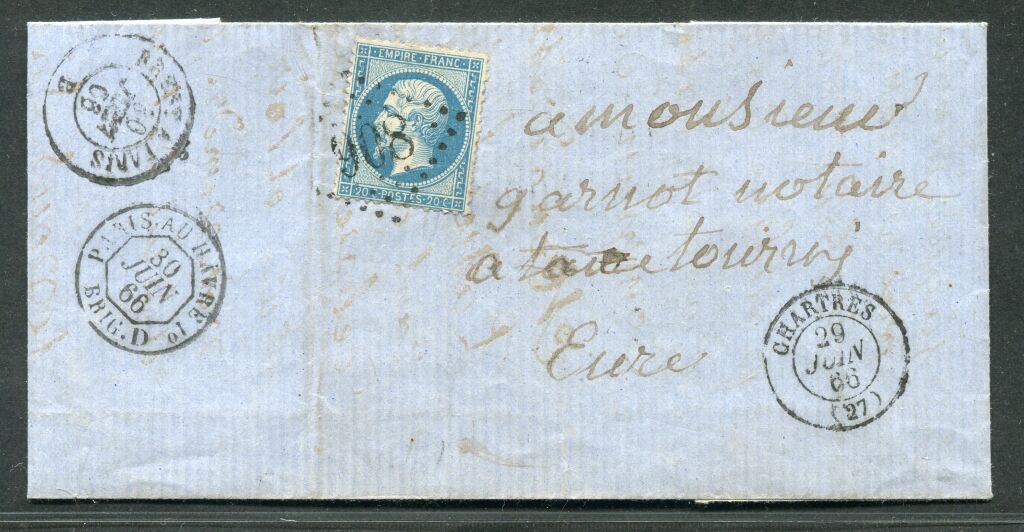 EMPIRE · FRANC ·
908
20 c POSTES 20 c
BREST A PARIS
30
66
B
a monsieur
garnot notaire
a tourny
Eure
PARIS · AU HAVRE 1°
30
JUIN
66
BRIG. D
CHARTRES
29
JUIN
66
(27)